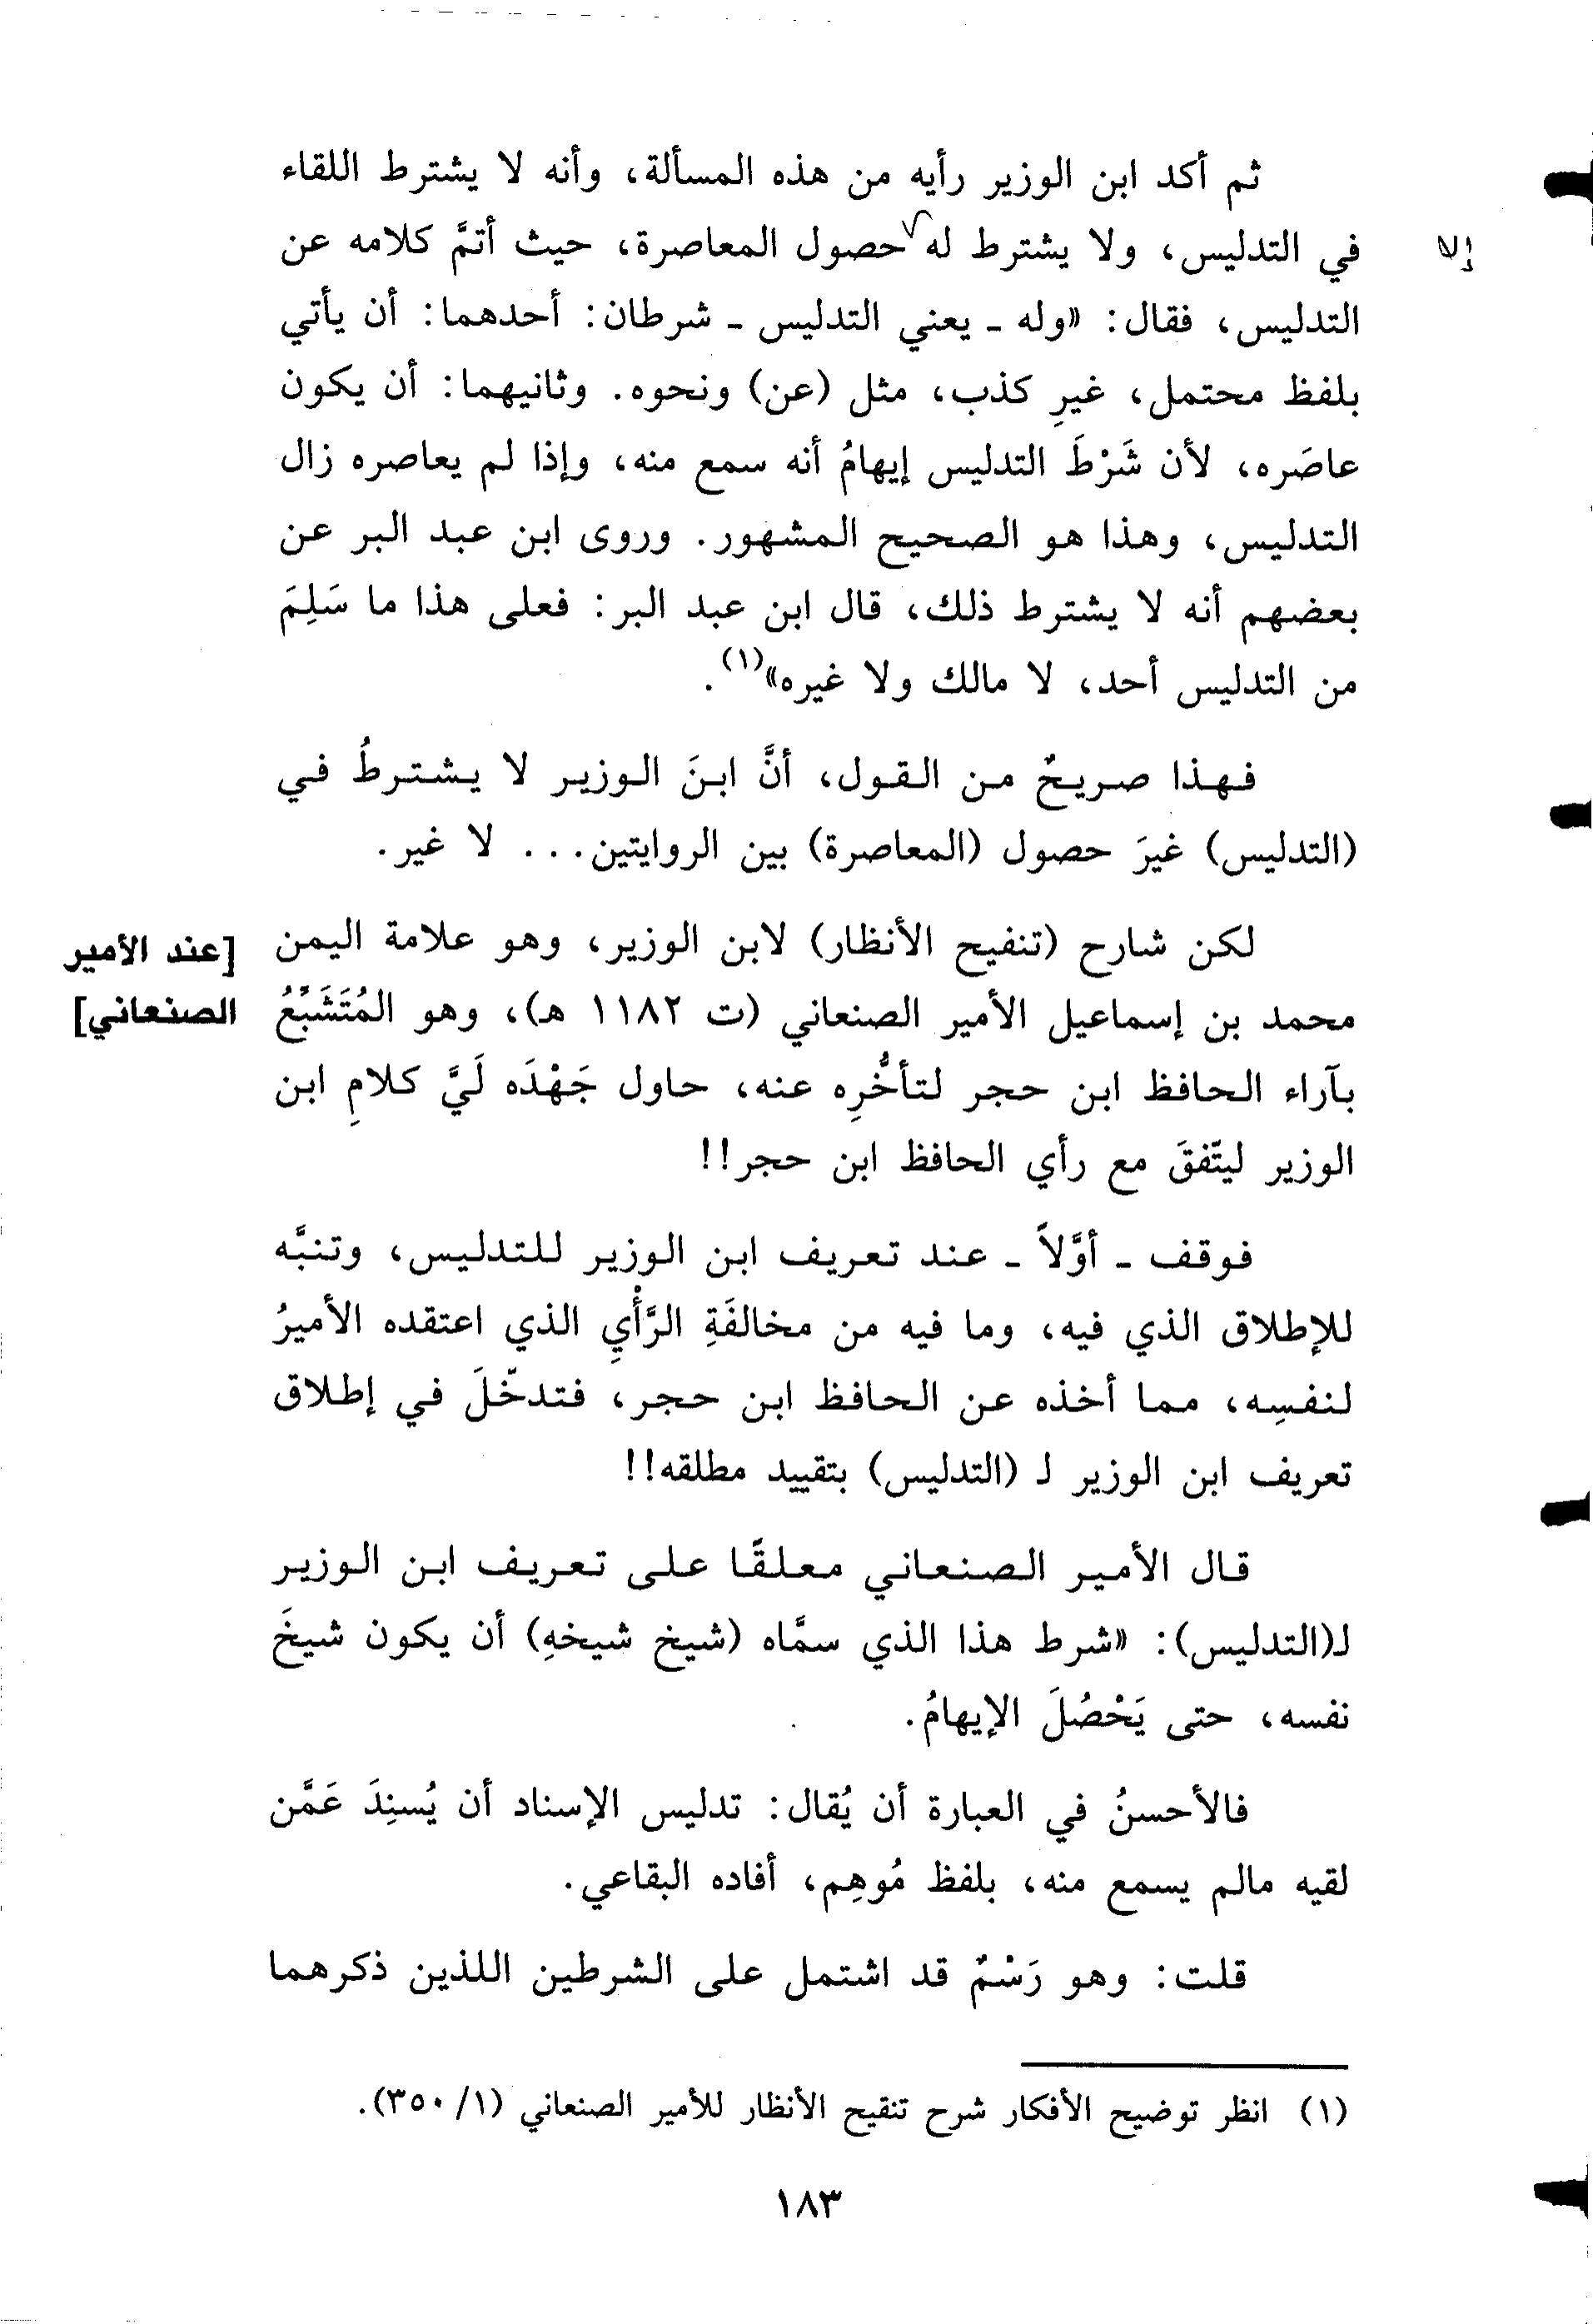 ثم أكد ابن الوزير رأيه من هذه المسألة، وأنه لا يشترط اللقاء
في التدليس، ولا يشترط له حصول المعاصرة، حيث أتمَّ كلامه عن
إلا
التدليس، فقال: «وله ـ يعني التدليس ـ شرطان: أحدهما: أن يأتي
بلفظ محتمل، غيرِ كذب، مثل (عن) ونحوه. وثانيهما: أن يكون
عاصَره، لأن شَرْطَ التدليس إيهامُ أنه سمع منه، وإذا لم يعاصره زال
التدليس، وهذا هو الصحيح المشهور. وروى ابن عبد البر عن
بعضهم أنه لا يشترط ذلك، قال ابن عبد البر: فعلى هذا ما سَلِمَ
من التدليس أحد، لا مالك ولا غيره»(١).
فهذا صريحٌ من القول، أنَّ ابنَ الوزير لا يشترطُ في
(التدليس) غيرَ حصول (المعاصرة) بين الروايتين... لا غير.
لكن شارح (تنفيح الأنظار) لابن الوزير، وهو علامة اليمن
[عند الأمير
محمد بن إسماعيل الأمير الصنعاني (ت ١١٨٢ هـ)، وهو المُتَشَبِّعُ
الصنعاني]
بآراء الحافظ ابن حجر لتأخُّرِه عنه، حاول جَهْدَه لَيَّ كلامِ ابن
الوزير ليتّفقَ مع رأي الحافظ ابن حجر!!
فوقف ـ أوَّلاً ـ عند تعريف ابن الوزير للتدليس، وتنبَّه
للإطلاق الذي فيه، وما فيه من مخالفَةِ الرَّأْيِ الذي اعتقده الأميرُ
لنفسِه، مما أخذه عن الحافظ ابن حجر، فتدخّلَ في إطلاق
تعريف ابن الوزير لـ (التدليس) بتقييد مطلقه!!
قال الأمير الصنعاني معلقًا على تعريف ابن الوزير
لـ(التدليس): «شرط هذا الذي سمَّاه (شيخ شيخهِ) أن يكون شيخَ
نفسه، حتى يَحْصُلَ الإيهامُ.
فالأحسنُ في العبارة أن يُقال: تدليس الإسناد أن يُسنِدَ عَمَّن
لقيه مالم يسمع منه، بلفظ مُوهِم، أفاده البقاعي.
قلت: وهو رَسْمٌ قد اشتمل على الشرطين اللذين ذكرهما
(١) انظر توضيح الأفكار شرح تنقيح الأنظار للأمير الصنعاني (١/ ٣٥٠).
١٨٣